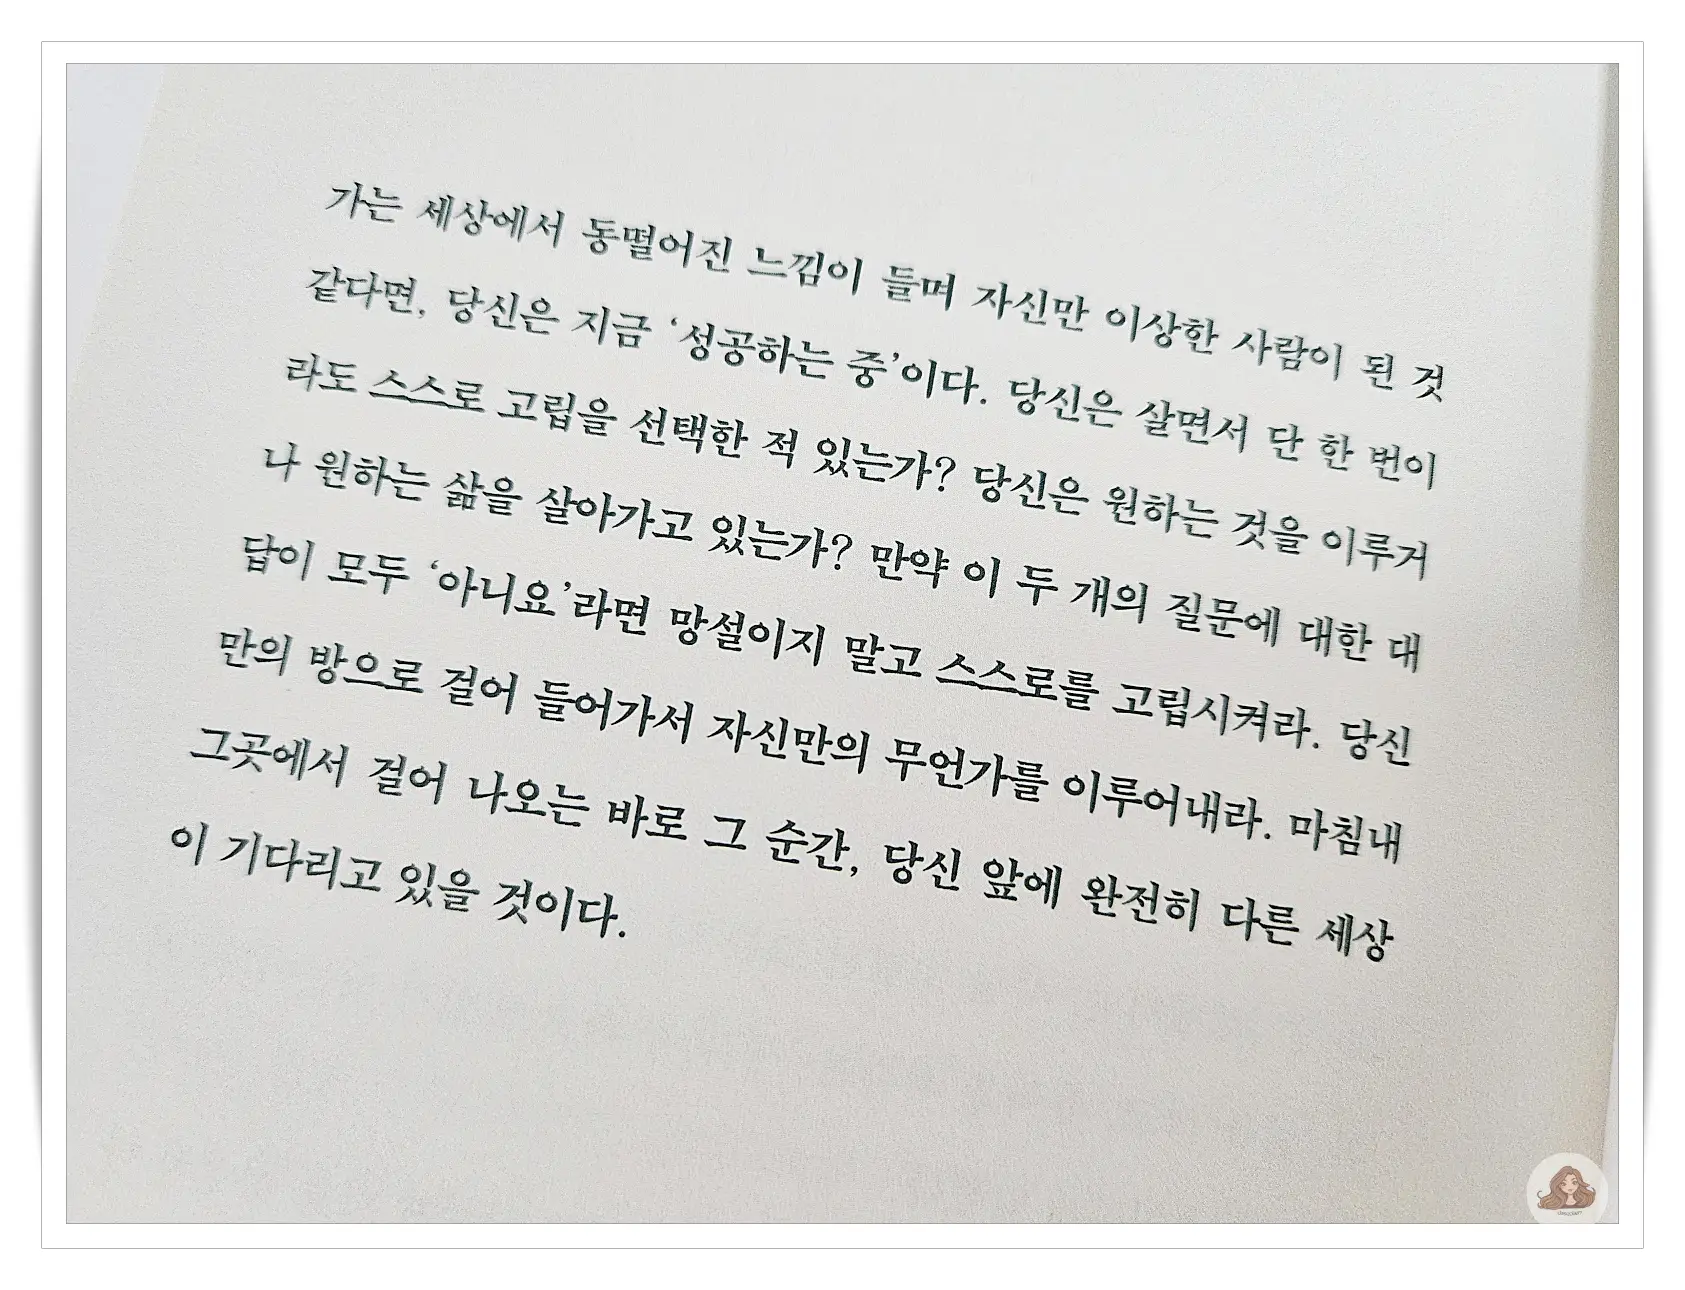 가는 세상에서 동떨어진 느낌이 들며 자신만 이상한 사람이 된 것
같다면, 당신은 지금 ‘성공하는 중’이다. 당신은 살면서 단 한 번이
라도 스스로 고립을 선택한 적 있는가? 당신은 원하는 것을 이루거
나 원하는 삶을 살아가고 있는가? 만약 이 두 개의 질문에 대한 대
답이 모두 ‘아니요’라면 망설이지 말고 스스로를 고립시켜라. 당신
만의 방으로 걸어 들어가서 자신만의 무언가를 이루어내라. 마침내
그곳에서 걸어 나오는 바로 그 순간, 당신 앞에 완전히 다른 세상
이 기다리고 있을 것이다.